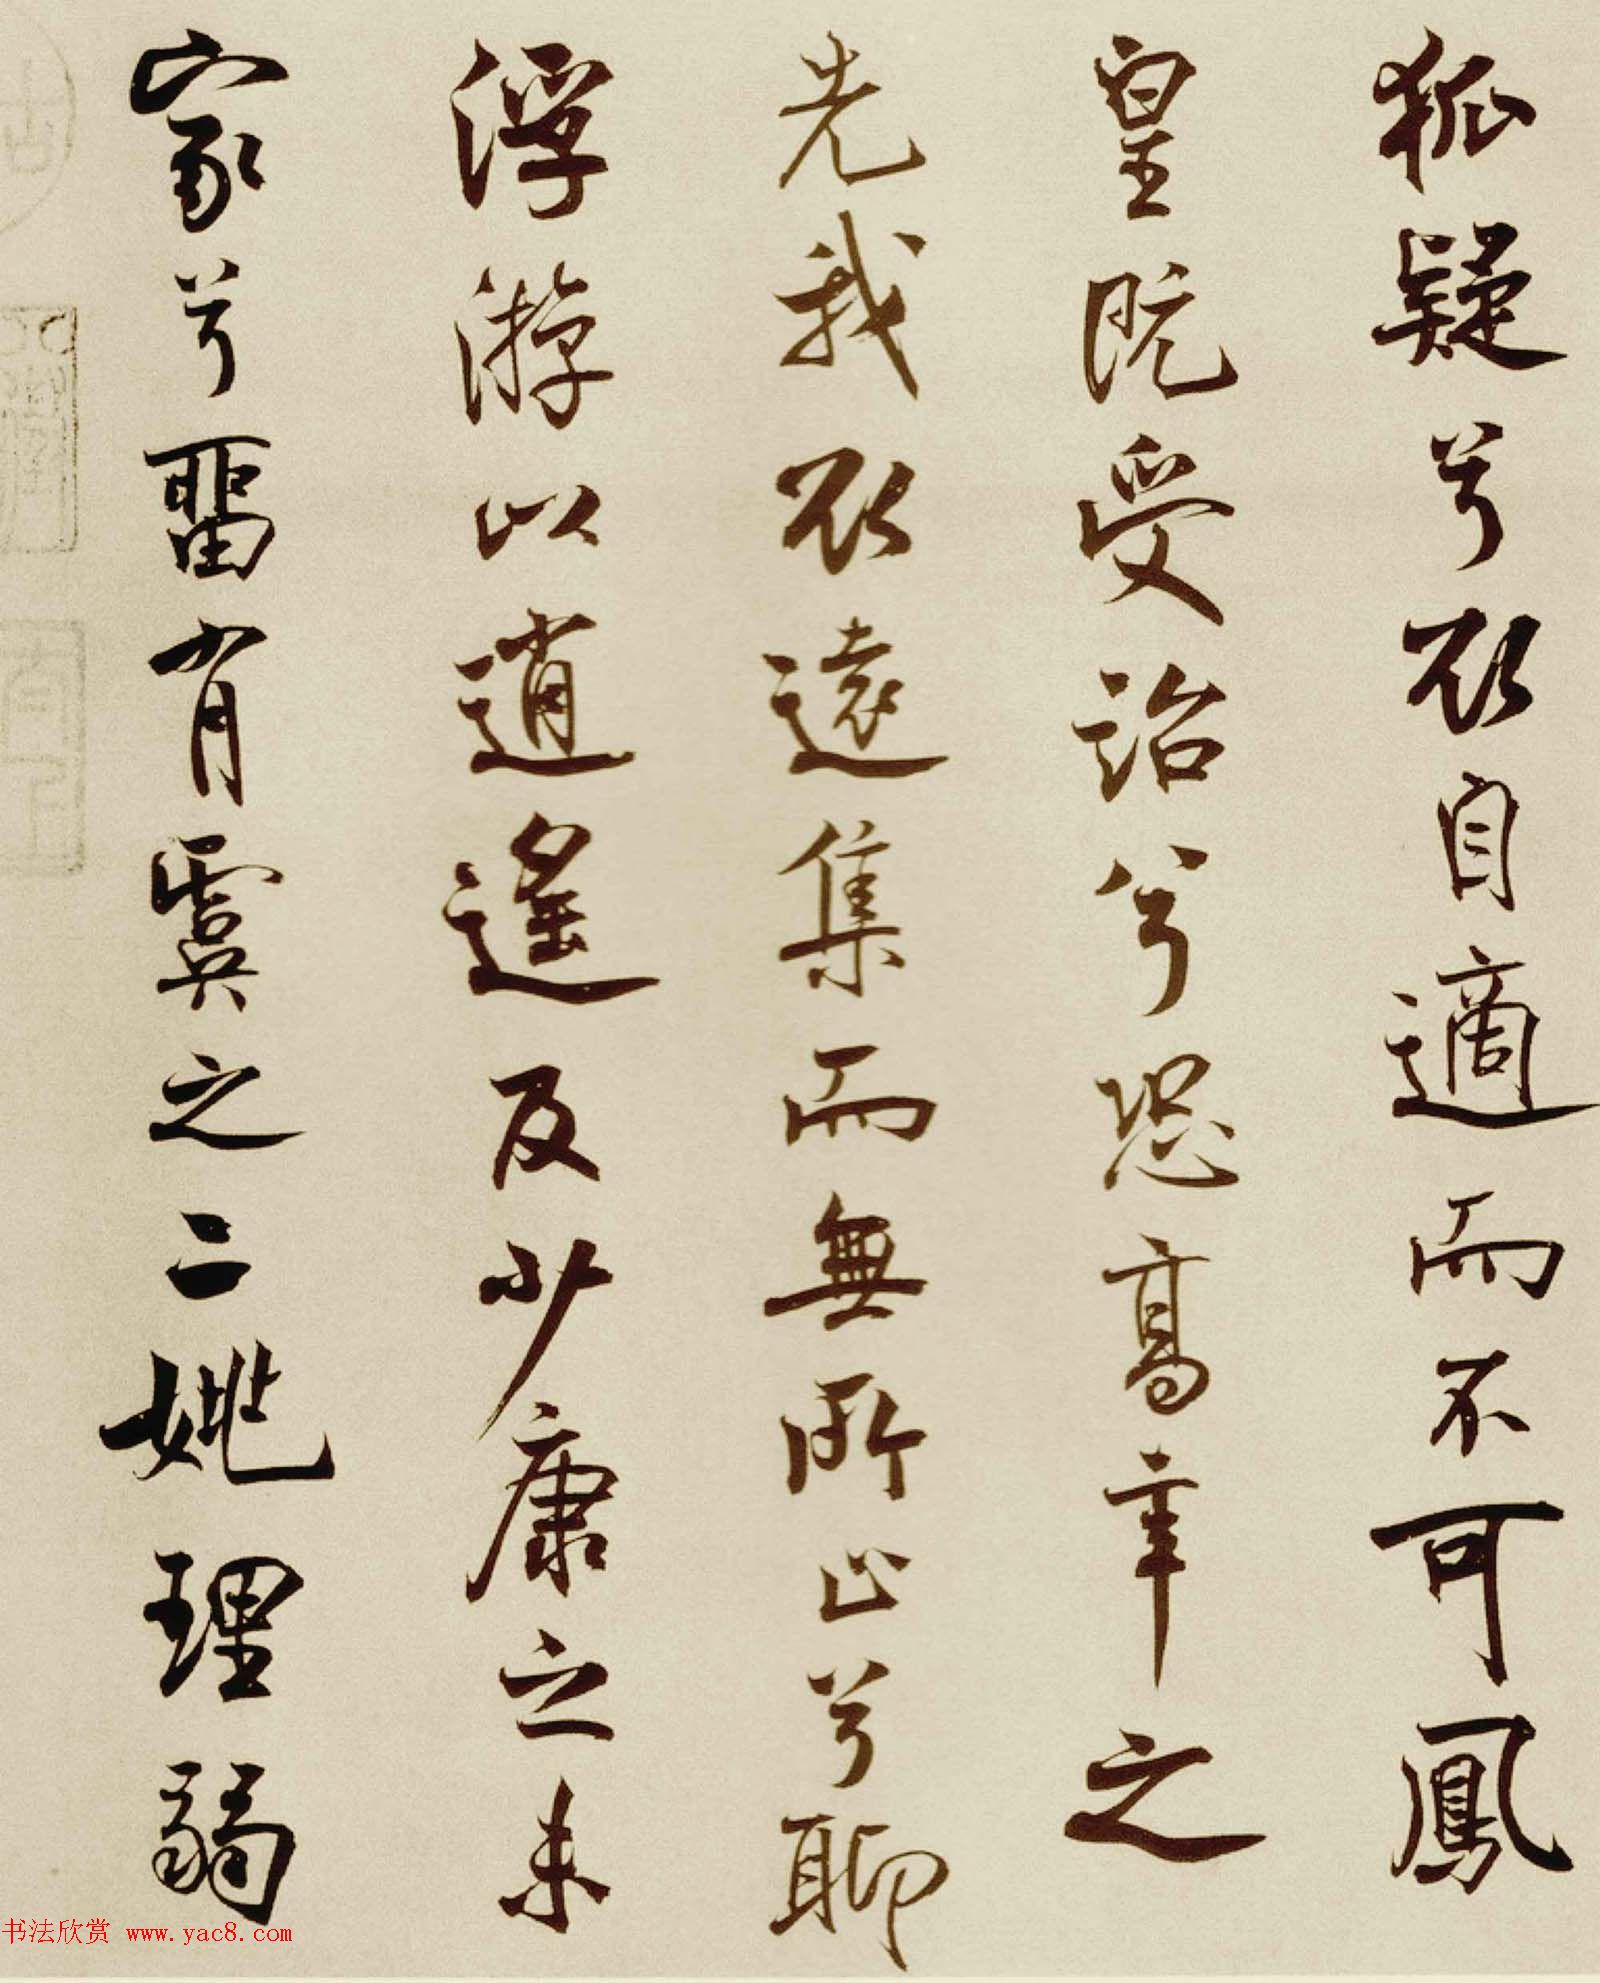 狐疑兮欲自適而不可鳳
皇既受詒兮恐高辛之
先我欲遠集而無所止兮聊
浮游以逍遙及少康之未
家兮畱有虞之二姚理弱
书法欣赏 www.yac8.com